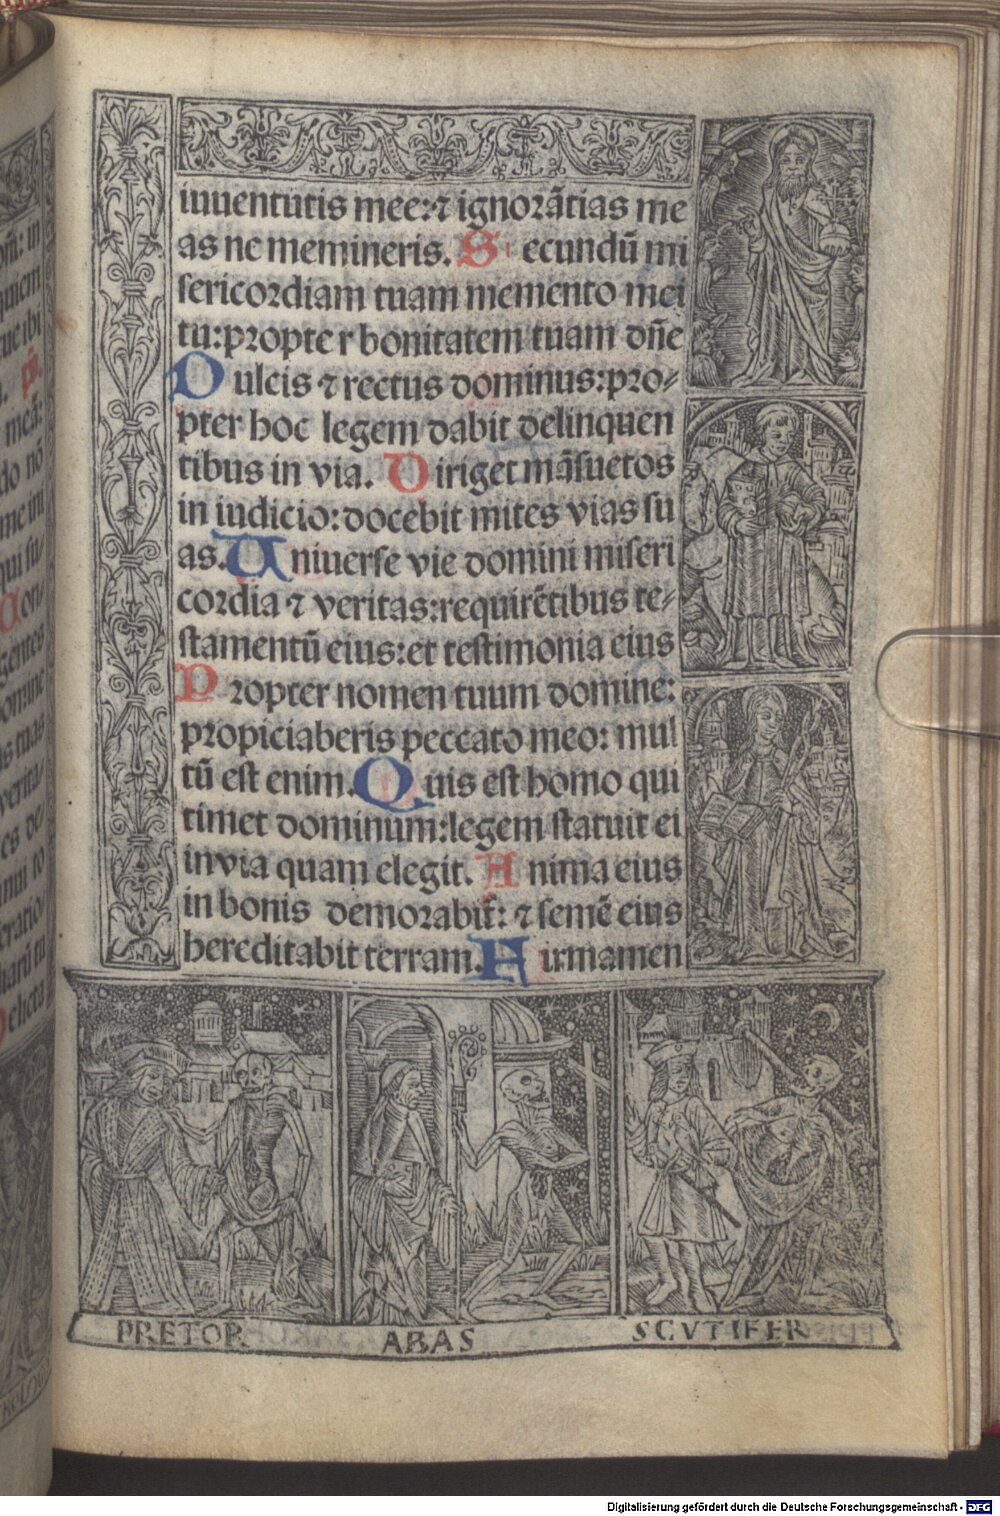 iuuentutis mee:⁊ ignorãtias me
as ne memineris. Secundũ mi
sericordiam tuam memento mei
tu:propter bonitatem tuam dñe
Dulcis ⁊ rectus dominus:pro⸗
pter hoc legem dabit delinquen
tibus in via. Diriget mãsuetos
in iudicio:docebit mites vias su
as. Uniuerse vie domini miseri
cordia ⁊ veritas:requirẽtibus te⸗
stamentũ eius:et testimonia eius
Propter nomen tuum domine:
propiciaberis peccato meo: mul
tũ est enim. Quis est homo qui
timet dominum:legem statuit ei
in via quam elegit. Anima eius
in bonis demorabit̃: ⁊ semẽ eius
hereditabit terram. Firmamen
PRETOR ABAS SCVTIFER
Digitalisierung gefördert durch die Deutsche Forschungsgemeinschaft - DFG